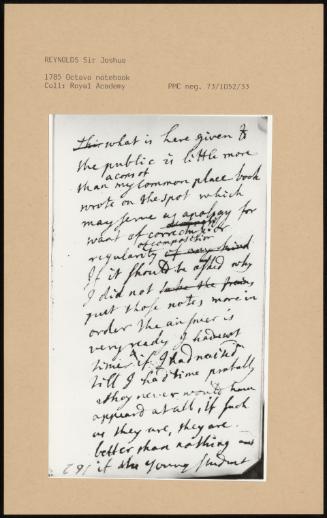 REYNOLDS Sir Joshua
1785 Octavo notebook
Coll: Royal Academy
PMC neg. 73/1D52/33
this what is here given to
the public is little more
than my common place book
wrote on the spot which
may serve as apology for
want of correctness or
of composition
regularity of any kind
If it should be asked why
I did not take the pains
put those notes more in
order the answer is
very ready I had not
time if I had waited
till I had time probably
they never would have
appeard at all, if such
as they are, they are
better than nothing and
if the Young Student